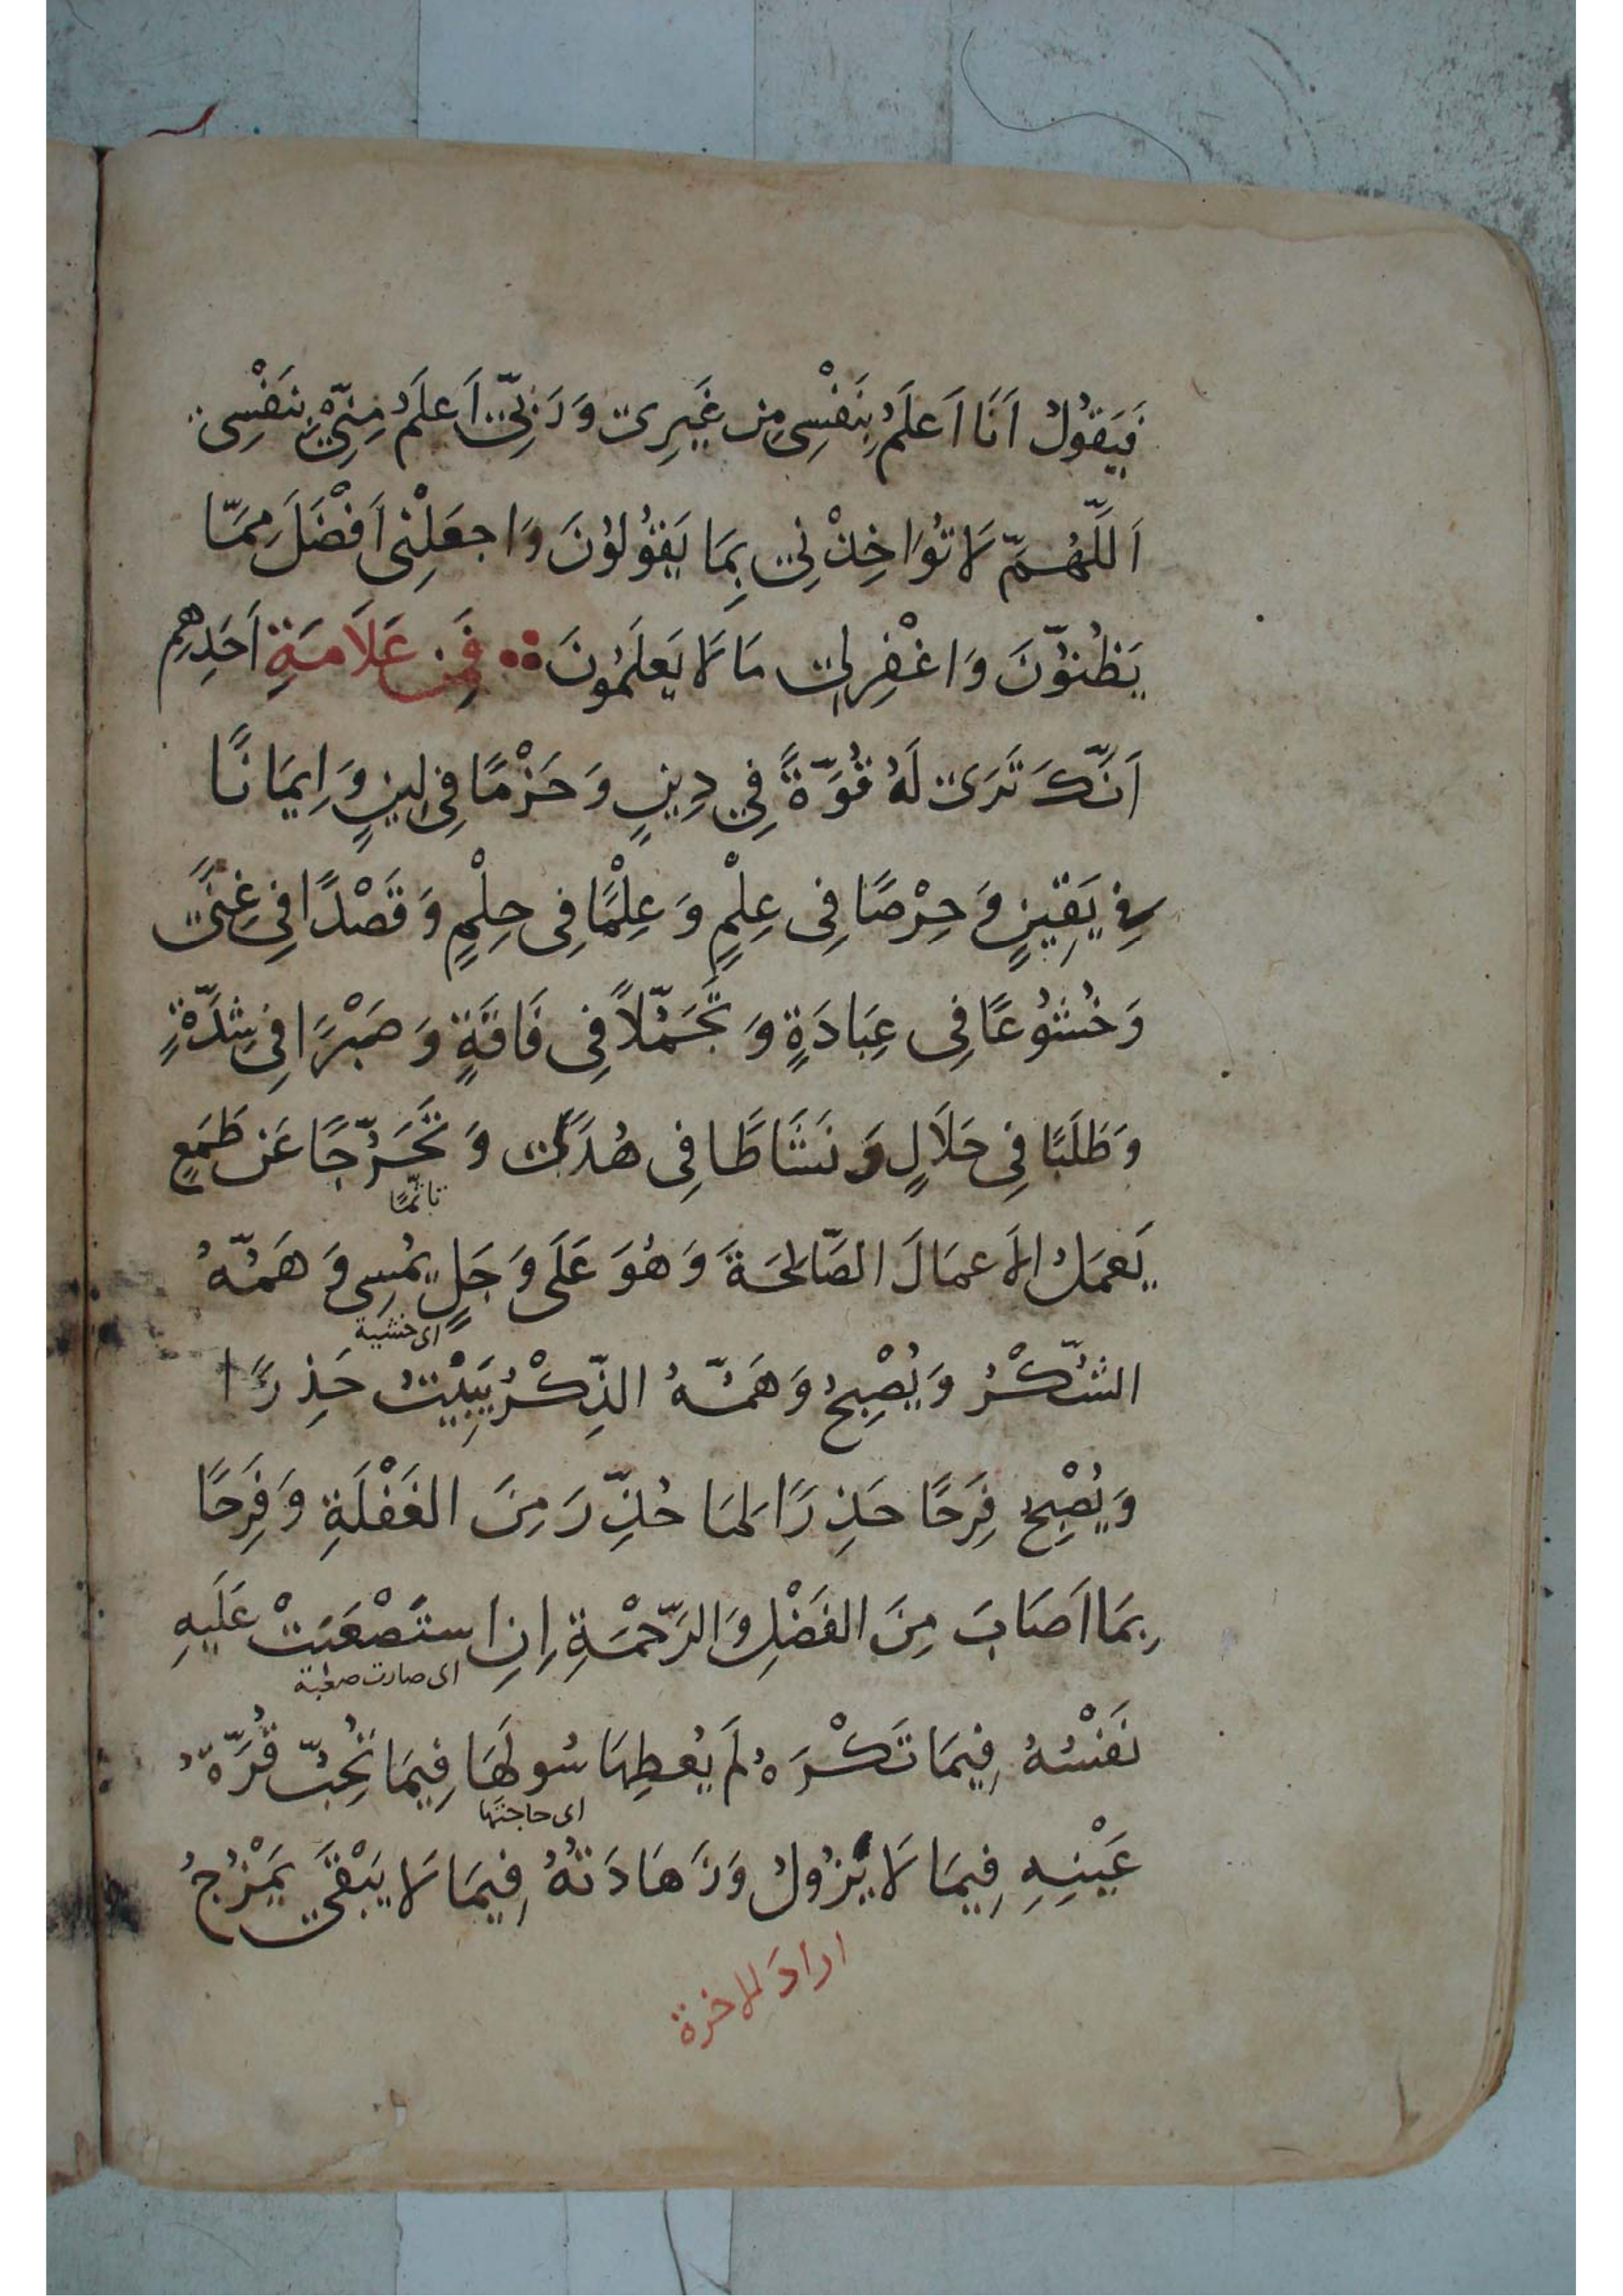 فَيَقُولُ اَنَا اَعلَمُ بِنَفْسِى مِن غَيرِى وَرَبِّى اَعلَمُ مِنِّى بِنَفْسِى
اَللَّهُمَّ لَا تُوَاخِذْنِى بِمَا يَقُولُونَ وَاجعَلْنِى اَفْضَلَ مِمَّا
يَظُنُّونَ وَاغْفِرلِى مَا لَا يَعلَمُونَ فَمِن عَلَامَةِ اَحَدِهِم
اَنَّكَ تَرَى لَهُ قُوَّةً فِي دِينٍ وَحَزْمًا فِى لِينٍ وَاِيمَانًا
فِى يَقِينٍ وَحِرْصًا فِى عِلْمٍ وَعِلْمًا فِى حِلْمٍ وَقَصْدًا فِى غِنًى
وَخُشُوعًا فِى عِبَادَةٍ وَتَجَمُّلًا فِى فَاقَةٍ وَصَبْرًا فِى شِدَّةٍ
وَطَلَبًا فِى حَلَالٍ وَنَشَاطًا فِى هُدًى وَتَحَرُّجًا عَن طَمَعٍ
تاثمًا
يَعمَلُ الاَعمَالَ الصَّالِحَةَ وَهُوَ عَلَى وَجَلٍ يُمسِى وَهَمُّهُ
اى خشية
الشُّكْرُ وَيُصْبِحُ وَهَمُّهُ الذِّكْرُ يَبِيْتُ حَذِرًا
وَيُصْبِحُ فَرِحًا حَذِرًا لِمَا حُذِّرَ مِنَ الغَفْلَةِ وَفَرِحًا
بِمَا اَصَابَ مِنَ الفَضْلِ وَالرَّحْمَةِ اِنِ استَصْعَبَتْ عَلَيهِ
اى صارت صعبة
نَفْسُهُ فِيمَا تَكْرَهُ لَم يُعطِهَا سُولَهَا فِيمَا تُحِبُّ قُرَّةُ
اى حاجتها
عَيْنِهِ فِيمَا لَا يَزُولُ وَزَهَادَتُهُ فِيمَا لَا يَبْقَى يَمْزُجُ
اراد الاخرة